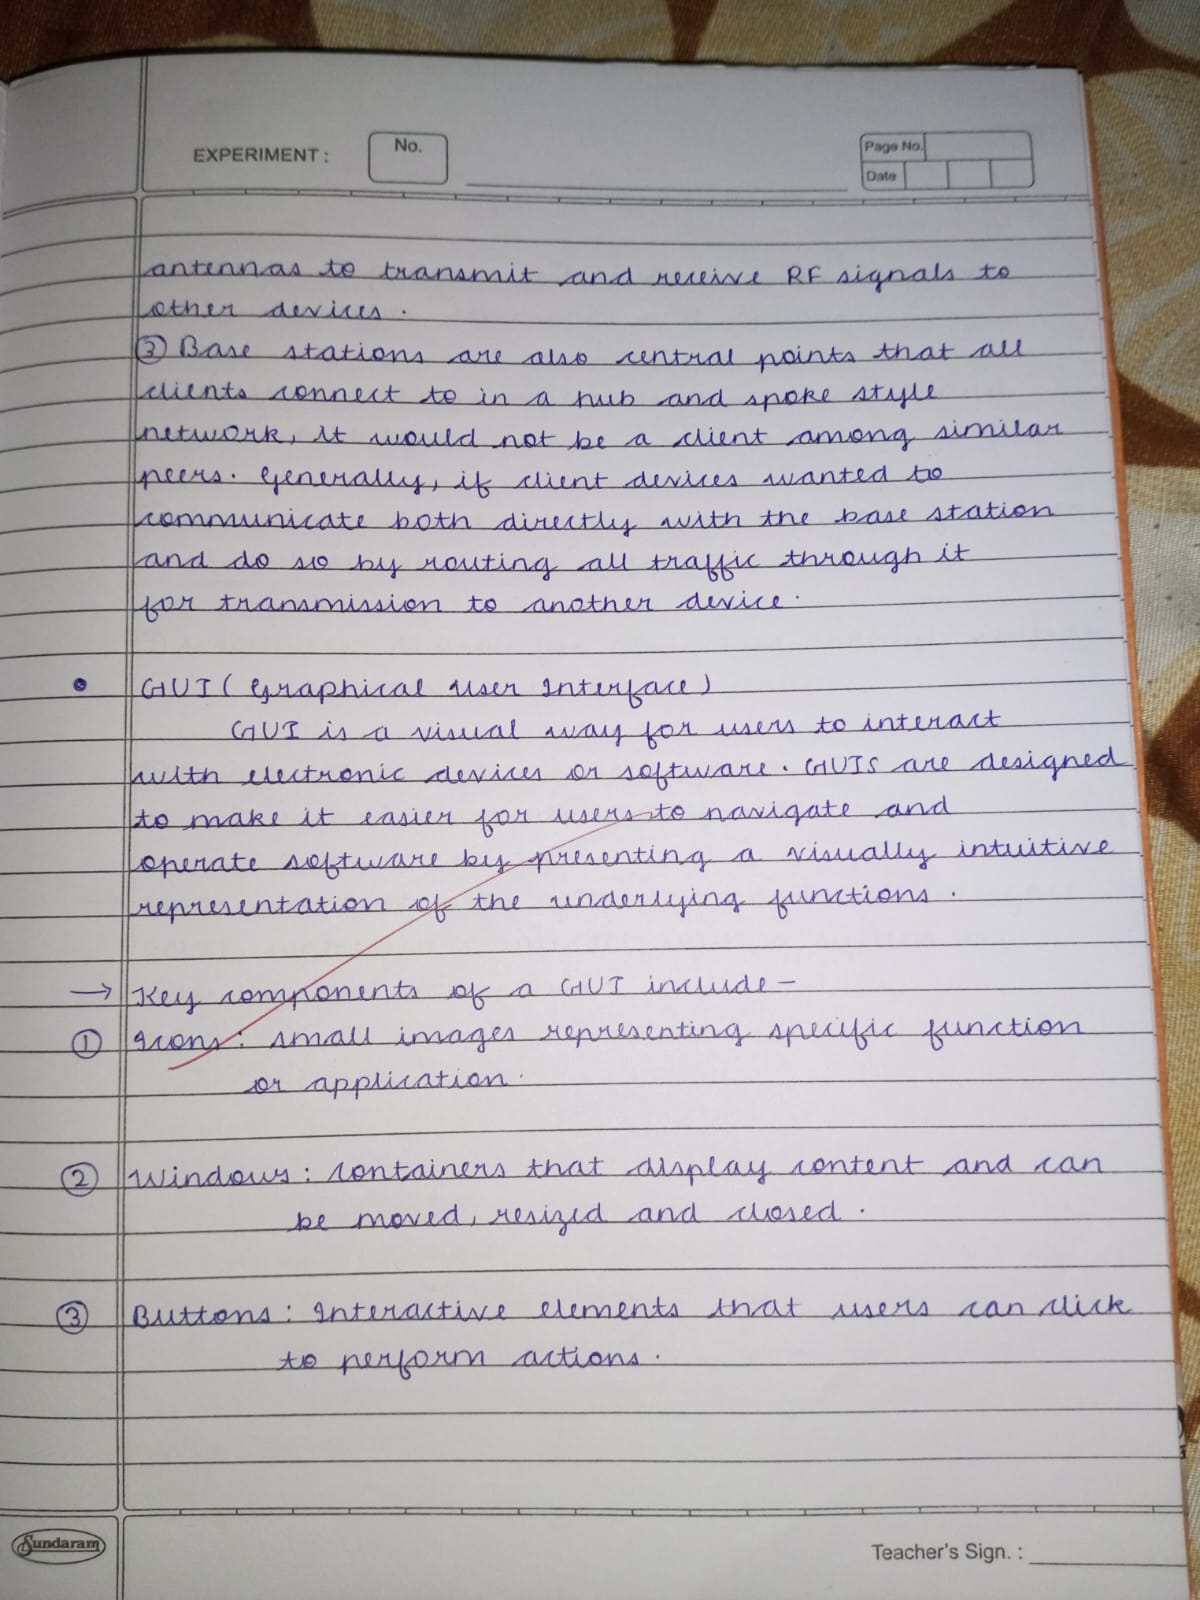 EXPERIMENT :
No.
Page No.
Date
antennas to transmit and receive RF signals to
other devices .
② Base stations are also central points that all
clients connect to in a hub and spoke style
network, it would not be a client among similar
peers. Generally, if client devices wanted to
communicate both directly with the base station
and do so by routing all traffic through it
for transmission to another device.
• GUI ( Graphical User Interface )
GUI is a visual way for users to interact
with electronic devices or software. GUIS are designed
to make it easier for users to navigate and
operate software by presenting a visually intuitive
representation of the underlying functions .
→ Key components of a GUI include -
① Icons : small images representing specific function
or application.
② Windows : containers that display content and can
be moved, resized and closed .
③ Buttons : Interactive elements that users can click
to perform actions .
Sundaram
Teacher's Sign. :